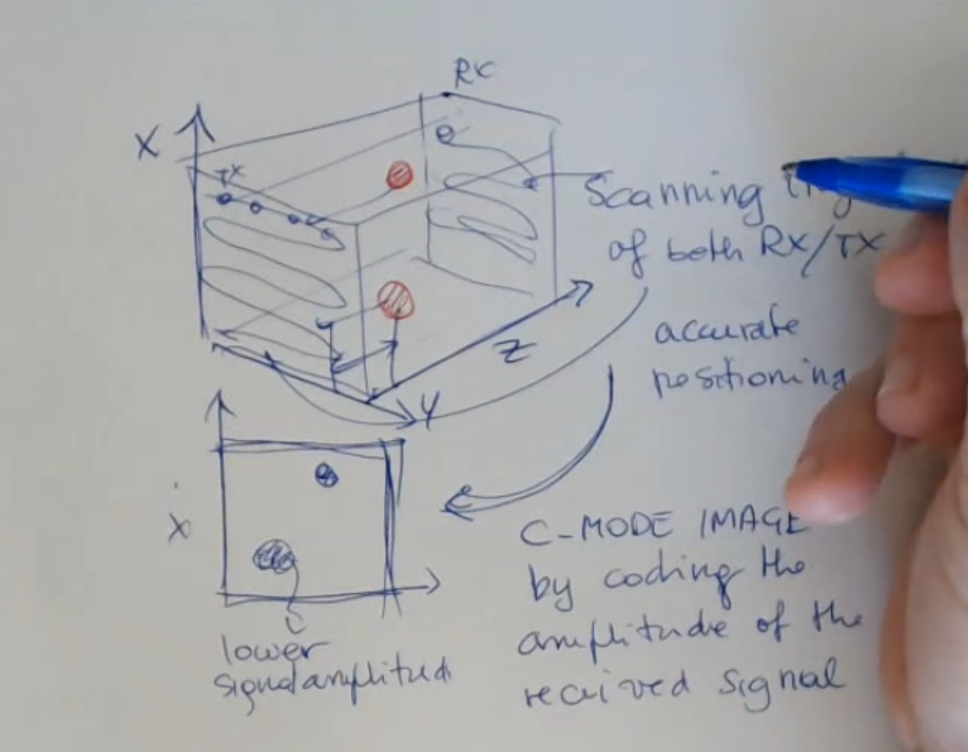 RX
X
TX
Scanning
of both RX/TX
accurate
positioning
Z
Y
x
C-MODE IMAGE
by coding the
amplitude of the
received signal
lower
signal amplitud